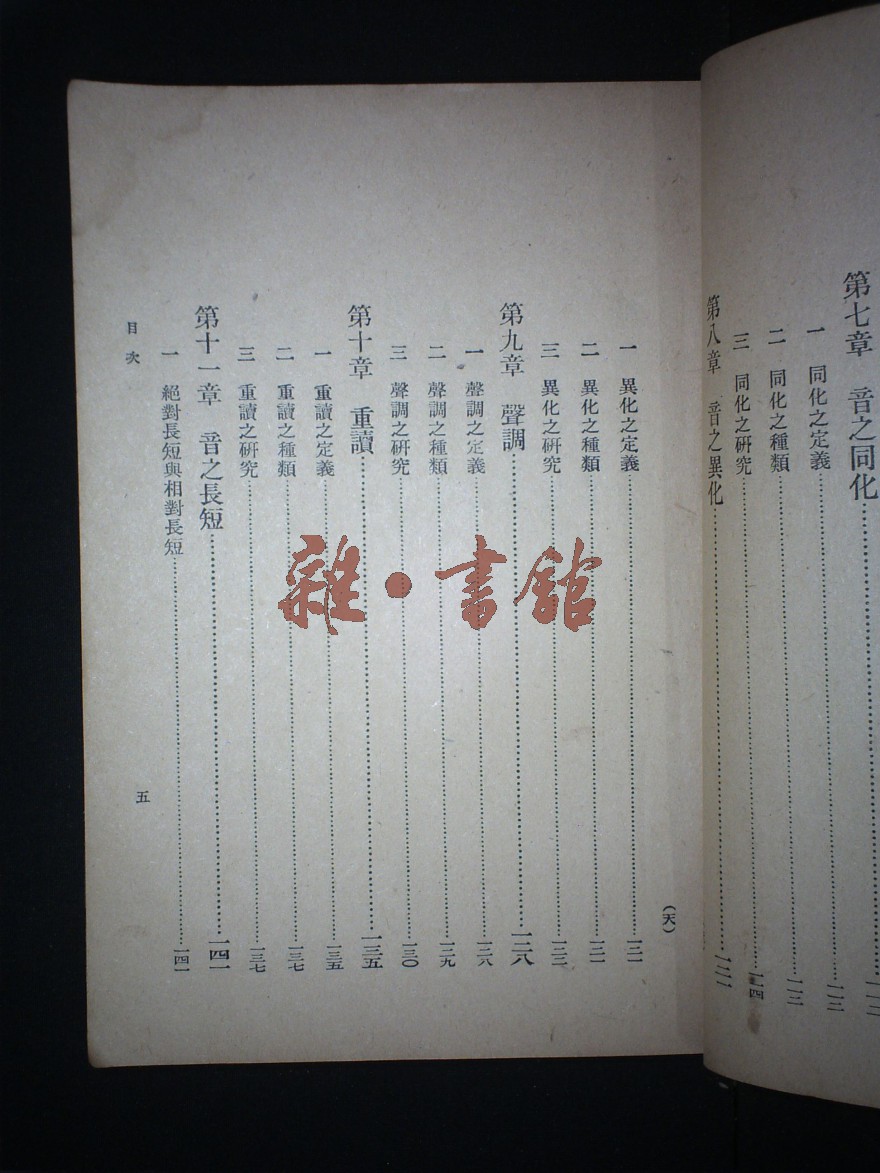 第七章　音之同化
一　同化之定義
二　同化之種類
三　同化之研究
第八章　音之異化……一二一
(天)
一　異化之定義……一二一
二　異化之種類……一二一
三　異化之研究……一二二
第九章　聲調……一二八
一　聲調之定義……一二八
二　聲調之種類……一二九
三　聲調之研究……一三〇
第十章　重讀……一三五
一　重讀之定義……一三五
二　重讀之種類……一三七
三　重讀之研究……一三七
第十一章　音之長短……一四一
一　絕對長短與相對長短……一四一
目次
五
雜·書館